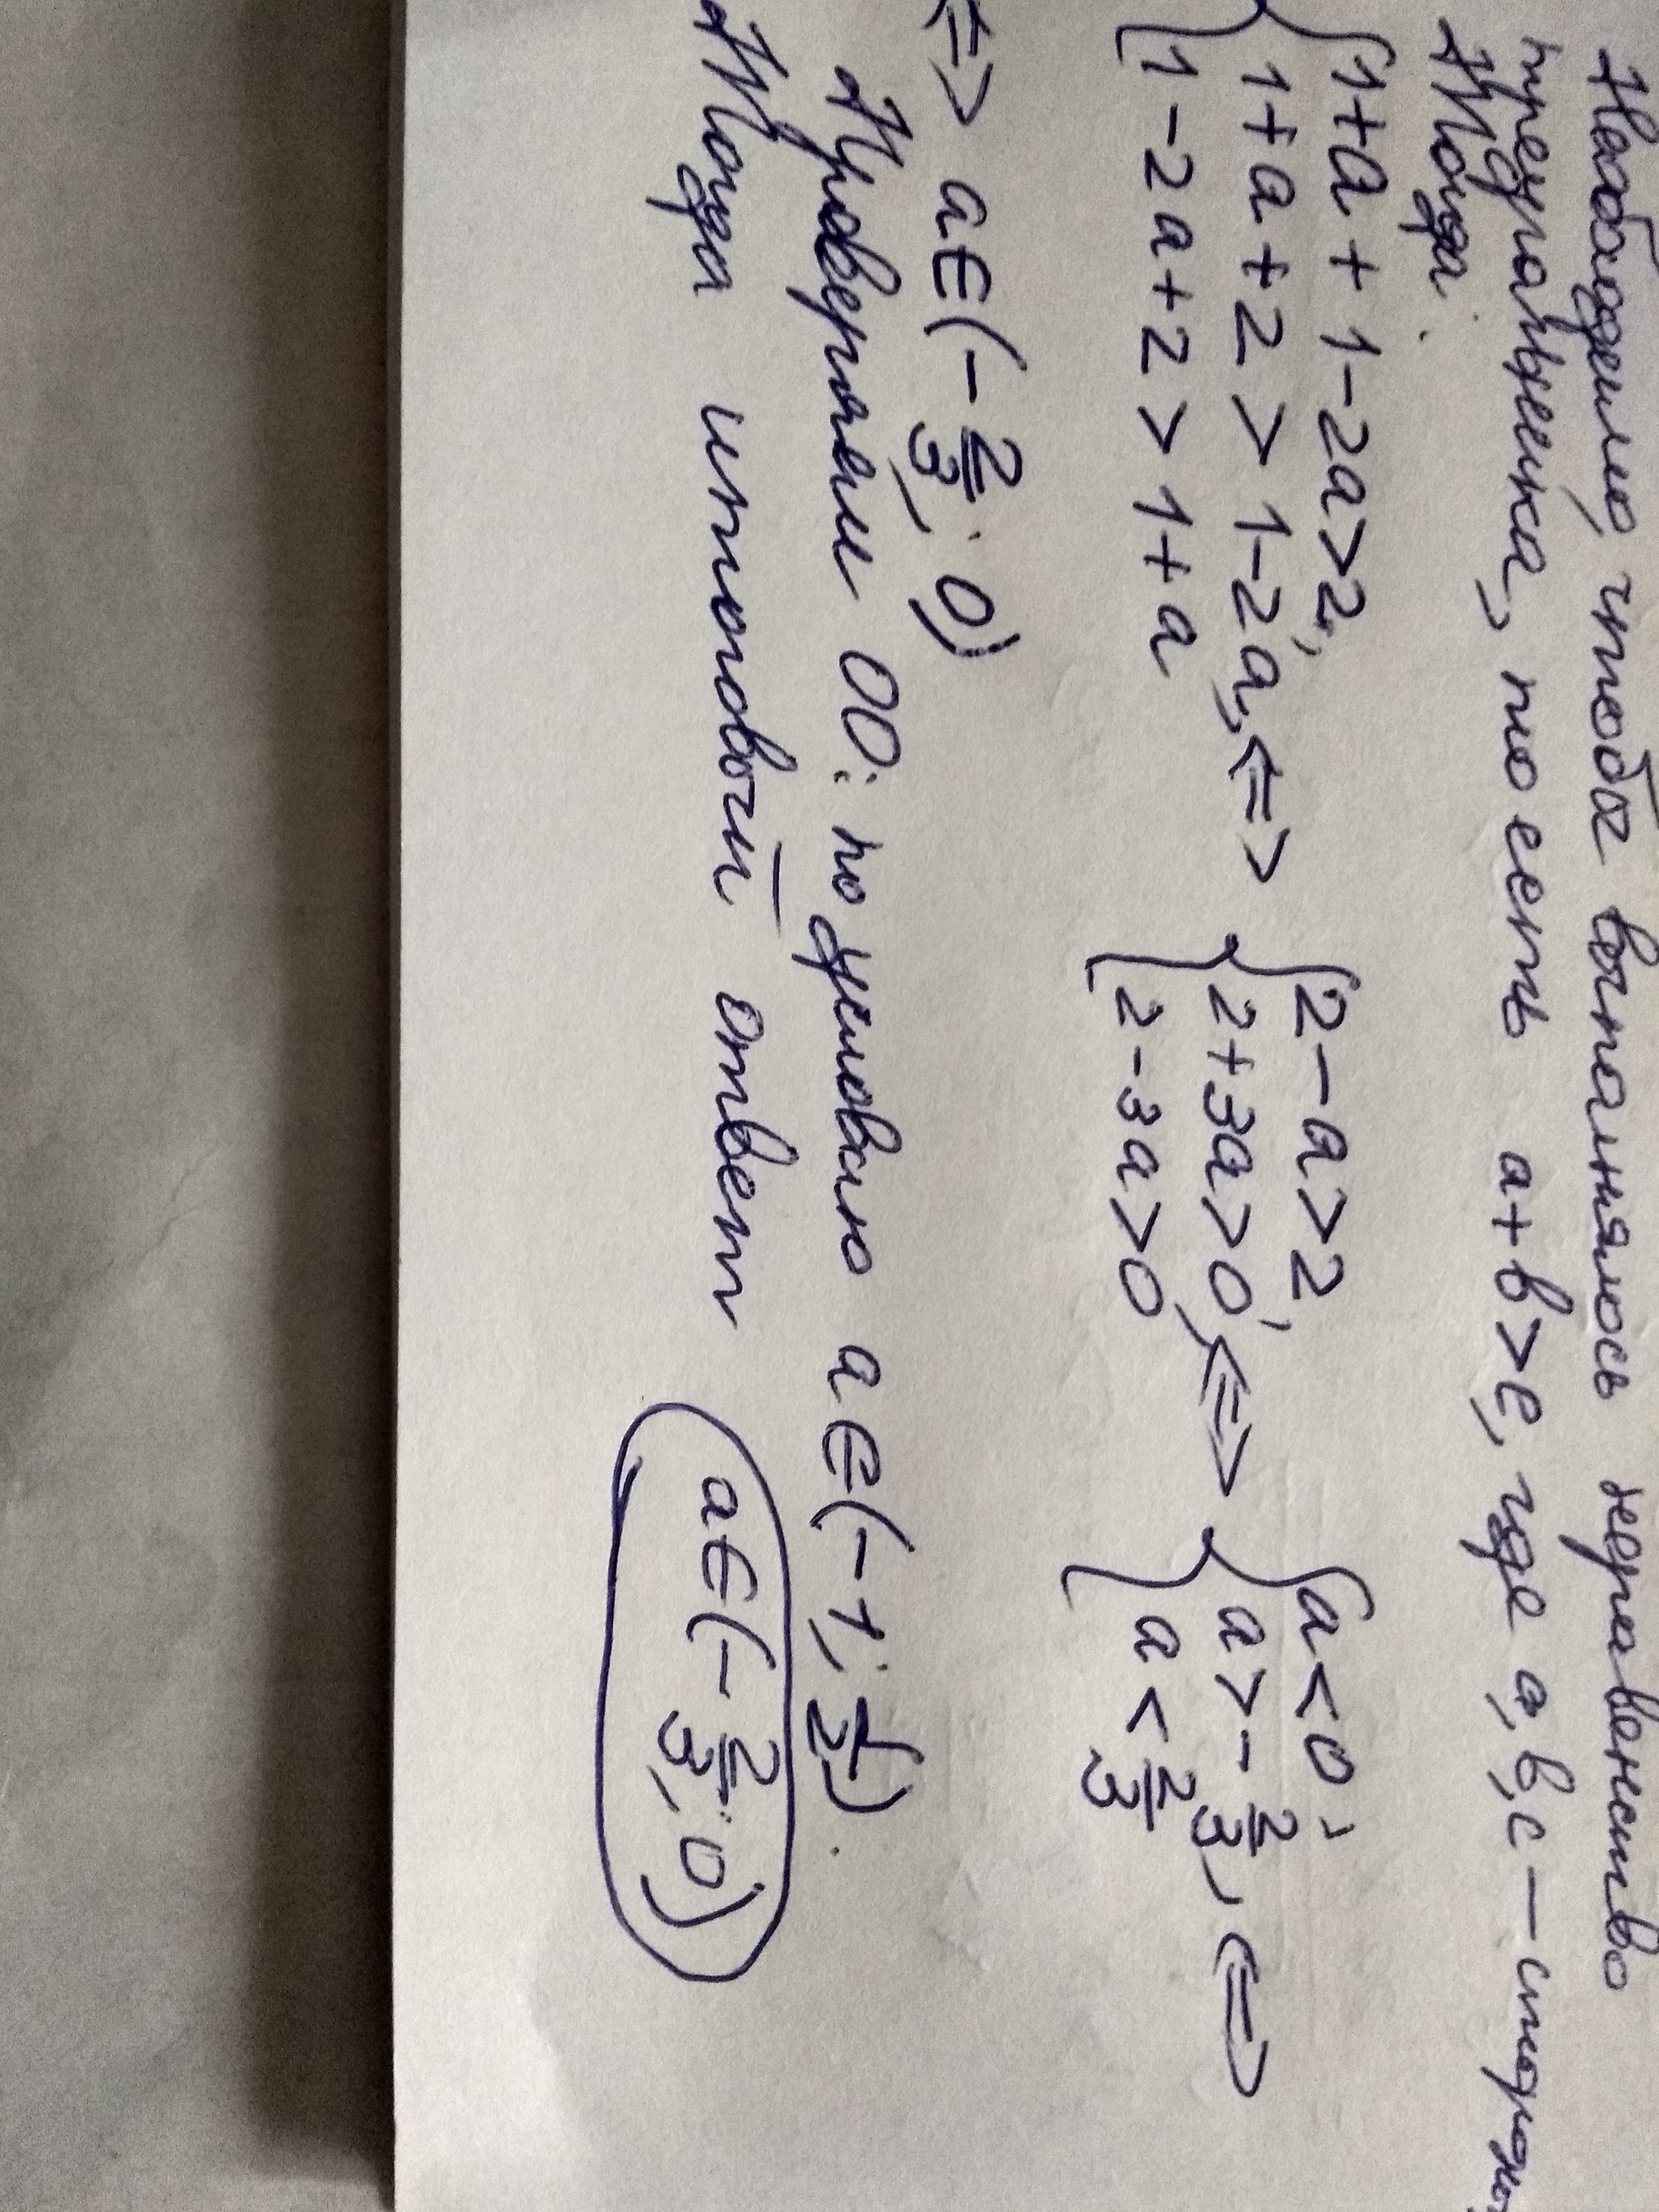 Необходимо, чтобы выполнялось неравенство
треугольника, то есть a+b>c, где a,b,c — сторон
Тогда:
{1+a+1-2a>2, {2-a>2 {a<0,
{1+a+2>1-2a, <=> {2+3a>0, <=> {a>-2/3, <=>
{1-2a+2>1+a {2-3a>0 {a<2/3
<=> a∈(-2/3; 0)
Проверяем ОО: по условию a∈(-1; 1/2).
Тогда итоговый ответ a∈(-2/3; 0)